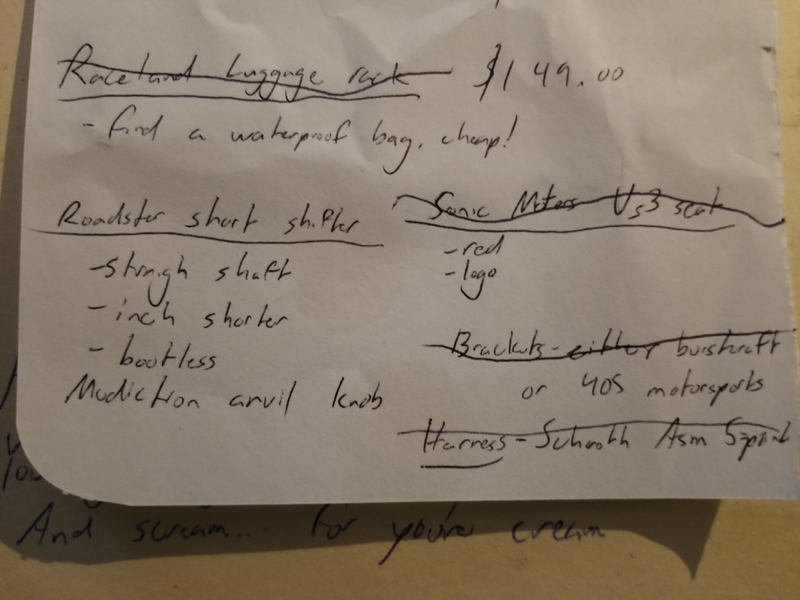 Raceland Luggage rack $149.00
- find a waterproof bag, cheap!
Roadster short shifter
- straigh shaft
- inch shorter
- bootless
Modiction anvil knob
Sonic Motors Vs3 seat
- red
- logo
Brackets - either
or 405 motorsports
Harness - Schroth Asm 5 point
And scream... for you're cream